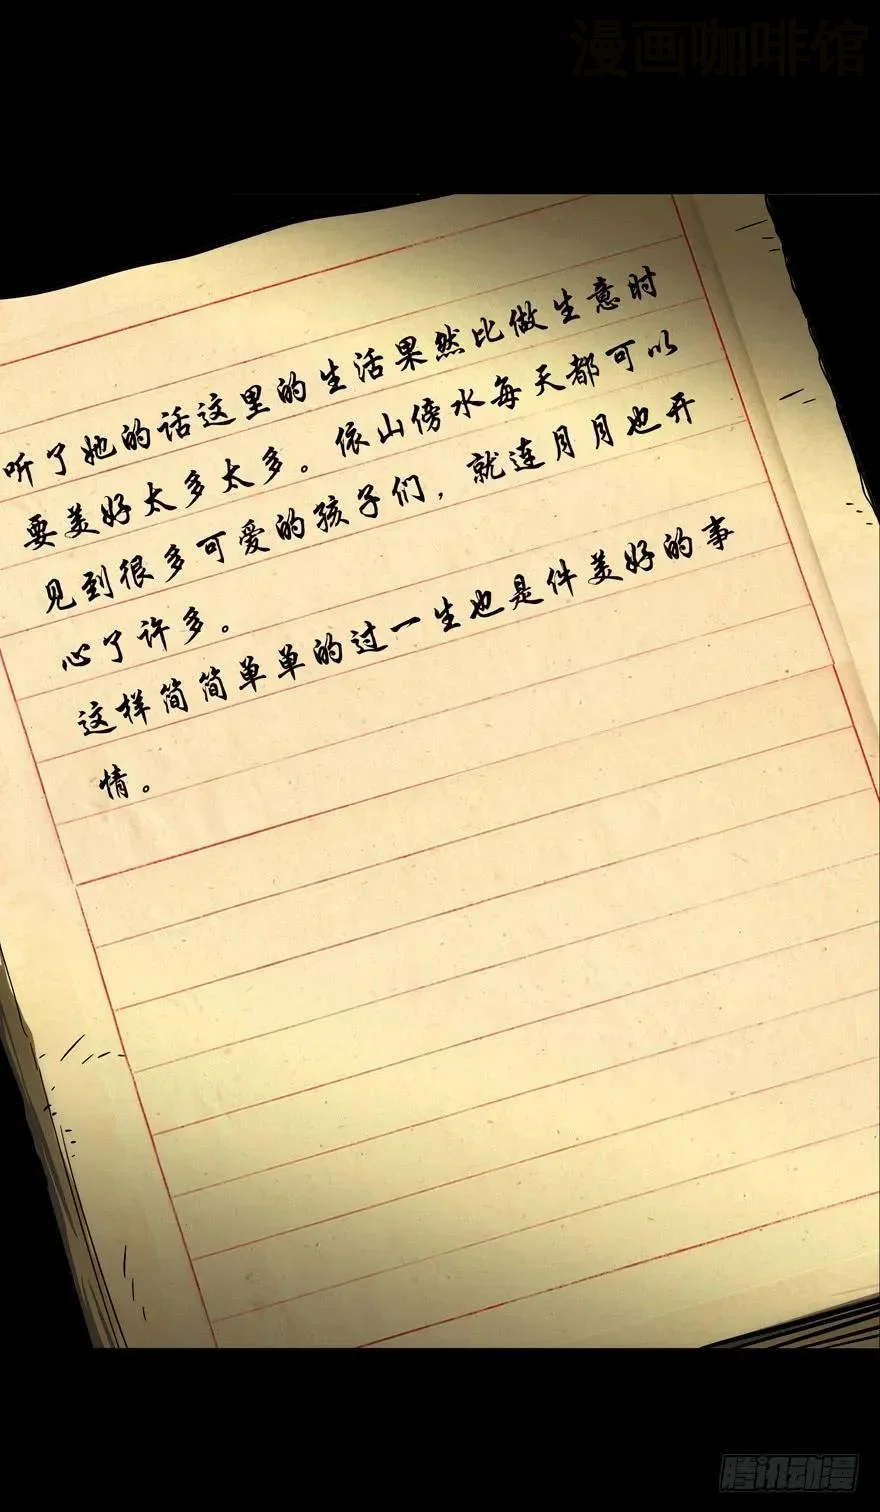 漫画咖啡馆
听了她的话这里的生活果然比做生意时
要美好太多太多。依山傍水每天都可以
见到很多可爱的孩子们，就连月月也开
心了许多。
这样简简单单的过一生也是件美好的事
情。
腾讯动漫